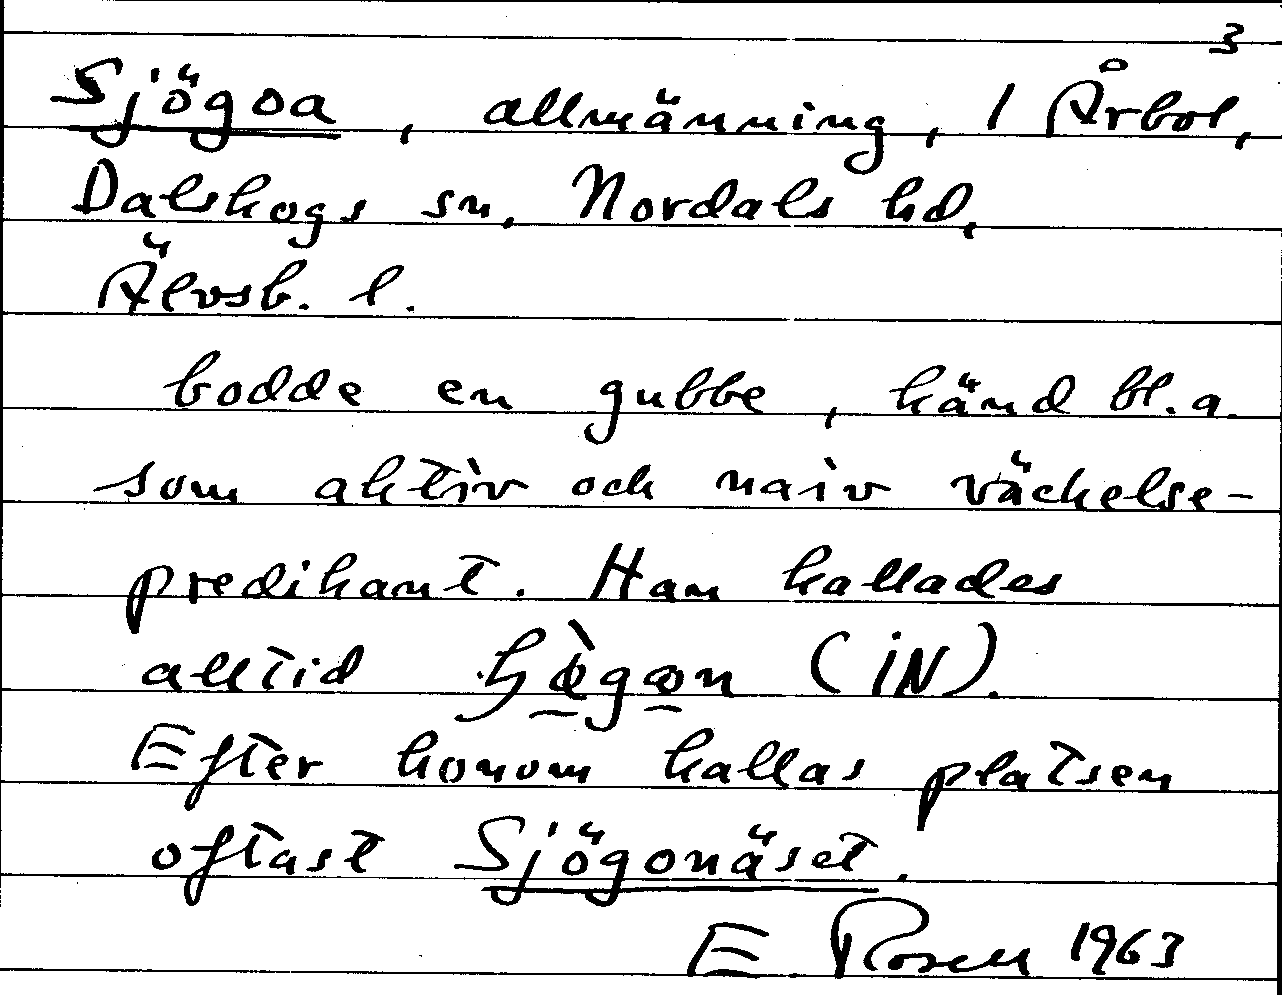 3
Sjögoa, allmänning, 1 Årbol,
Dalskogs sn, Nordals hd,
Älvsb. l.
bodde en gubbe, känd bl.a.
som aktiv och naiv väckelse-
predikant. Han kallades
alltid (iN).
Efter honom kallas platsen
oftast Sjögonäset.
E. Rosen 1963